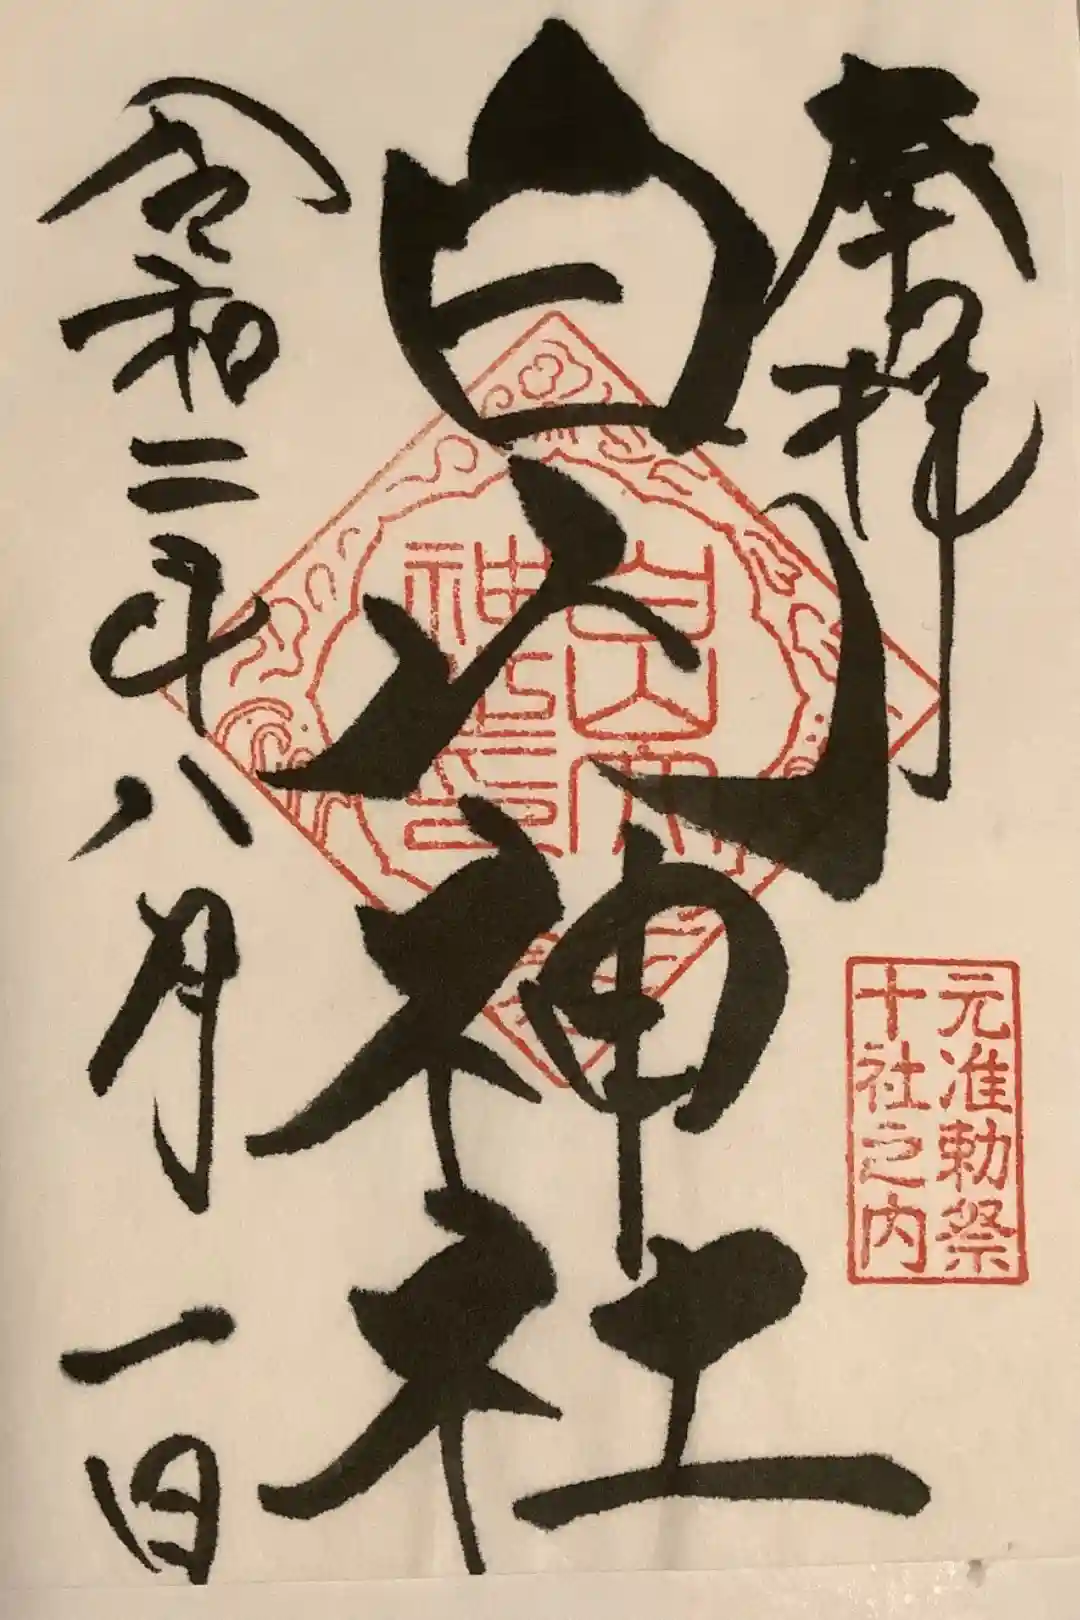 奉拝
元准勅祭
十社之内
白山神社
白山
神社
令和二年八月一日